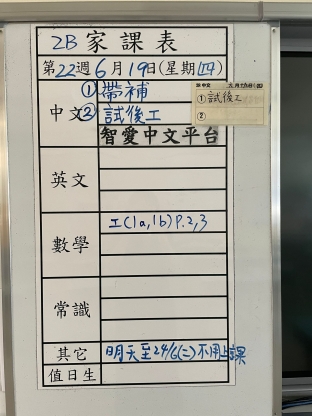 2B 家課表
第22週6月19日(星期四)
中文 ①帶補
②試後工
智愛中文平台
①試後工
②
英文
數學 工(1a,1b) P.2,3
常識
其它 明天至24/6(二)不用上課
值日生